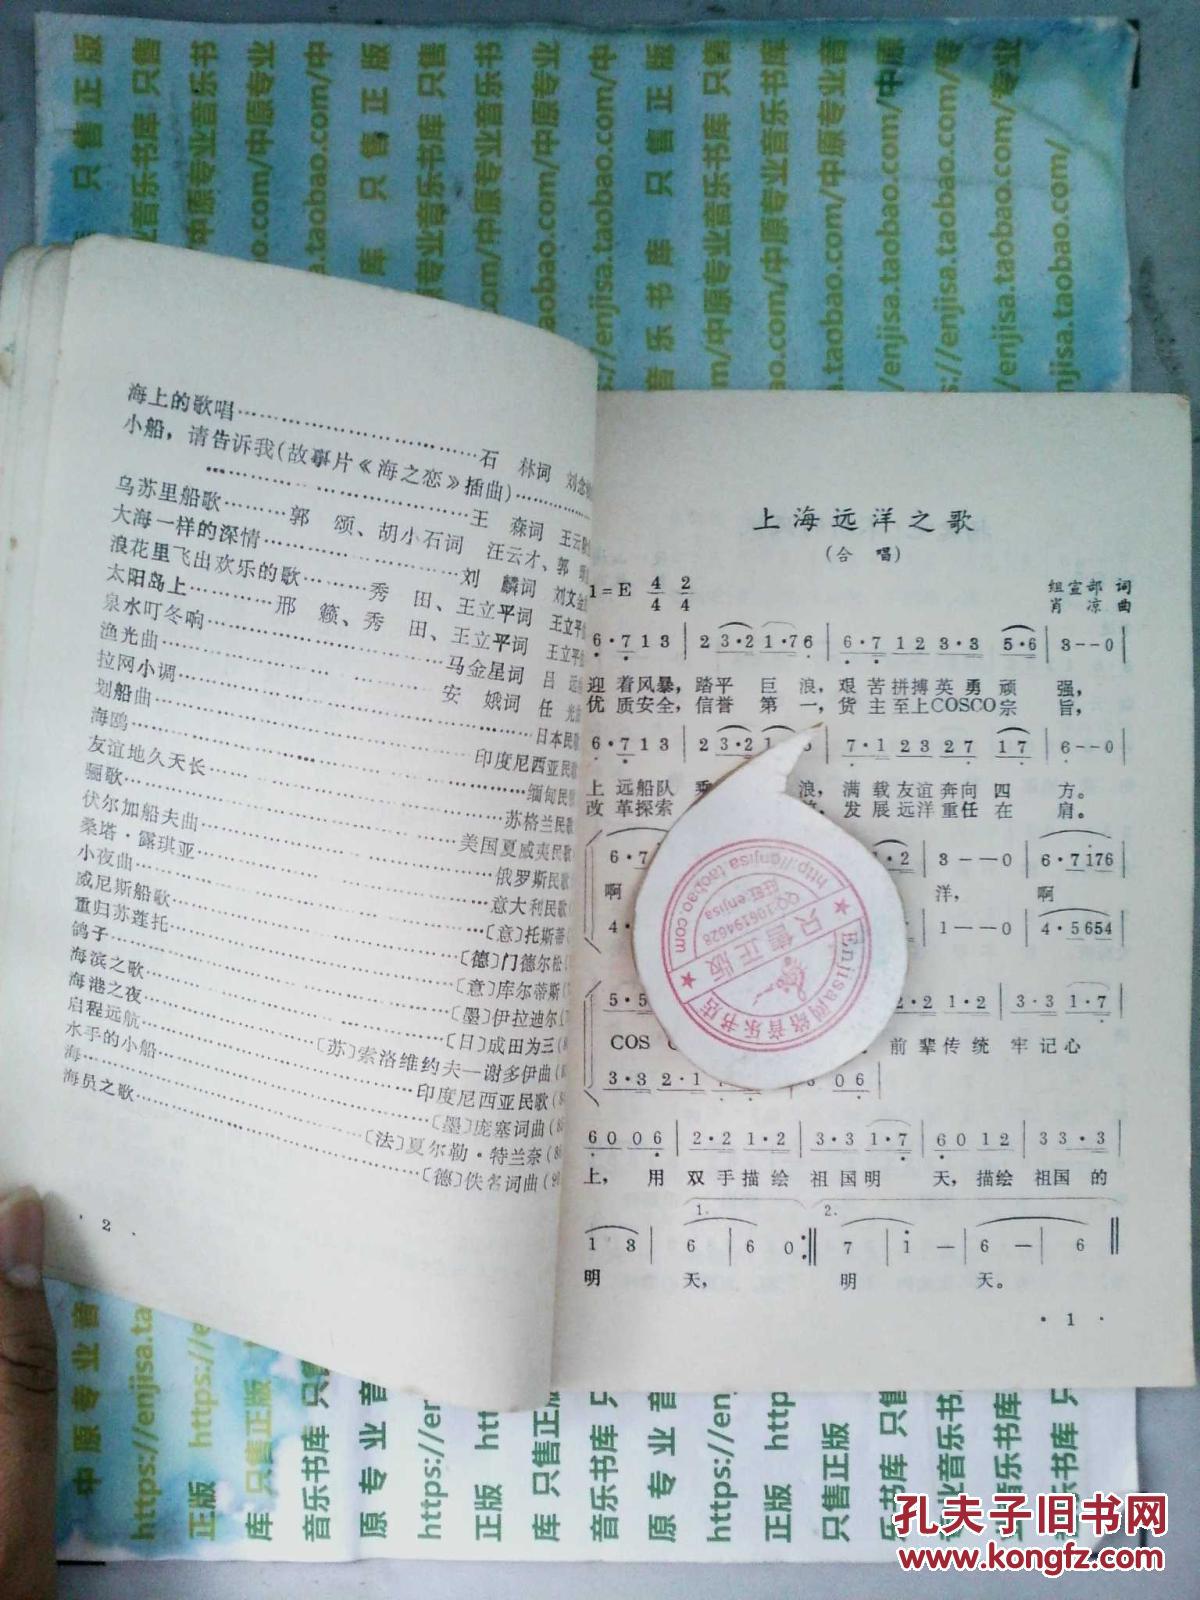 海上的歌唱……石 林词 刘念
小船，请告诉我(故事片《海之恋》插曲)……
……王 森词 王云
乌苏里船歌……郭 颂、胡小石词 汪云才、郭
大海一样的深情……刘 麟词 刘文金
浪花里飞出欢乐的歌……秀 田、王立平词 王立平
太阳岛上……邢 籁、秀 田、王立平词 王立平
泉水叮冬响……马金星词 吕 远
渔光曲……安 娥词 任 光
拉网小调……日本民歌
划船曲……印度尼西亚民歌
海鸥……缅甸民歌
友谊地久天长……苏格兰民歌
骊歌……美国夏威夷民歌
伏尔加船夫曲……俄罗斯民歌
桑塔·露琪亚……意大利民歌
小夜曲……〔意〕托斯蒂
威尼斯船歌……〔德〕门德尔松
重归苏莲托……〔意〕库尔蒂斯
鸽子……〔墨〕伊拉迪尔
海滨之歌……〔日〕成田为三
海港之夜……〔苏〕索洛维约夫—谢多伊曲
启程远航……印度尼西亚民歌
水手的小船……〔墨〕庞塞词曲
海……〔法〕夏尔勒·特兰奈
海员之歌……〔德〕佚名词曲
· 2 ·
上海远洋之歌
(合 唱)
1=E 4/4 2/4
组宣部 词
肖 凉 曲
6·7 1 3 | 2 3·2 1·7 6 | 6·7 1 2 3·3 5·6 | 3 - - 0 |
迎 着风暴，踏平 巨 浪，艰 苦拼搏英 勇 顽 强，
优 质安全，信誉 第 一，货 主至上COSCO宗 旨，
6·7 1 3 | 2 3·2 1 6 | 7·1 2 3 2 7 1 7 | 6 - - 0 |
上 远船队 浪，满 载友谊奔向 四 方。
改 革探索 发 展远洋重任 在 肩。
6·7 ·2 | 3 - - 0 | 6·7 1 7 6 |
啊 洋， 啊
4· | 1 - - 0 | 4·5 6 5 4 |
5·5 ·2 1·2 | 3·3 1·7 |
COS 前 辈传统 牢 记心
3·3 2·1 3 0 6 |
6 0 0 6 | 2·2 1·2 | 3·3 1·7 | 6 0 1 2 | 3 3·3 |
上， 用 双 手描绘 祖 国明 天，描绘 祖国 的
1. 2.
1 3 | 6 | 6 0 :‖ 7 | 1 - | 6 - | 6 ‖
明 天， 明 天。
· 1 ·
Enjisa网络音乐书店
http://enjisa.taobao.com
只售正版
QQ:106194628
旺旺:enjisa
只售正版
中原专业音乐书库
https://enjisa.taobao.com/
孔夫子旧书网
www.kongfz.com